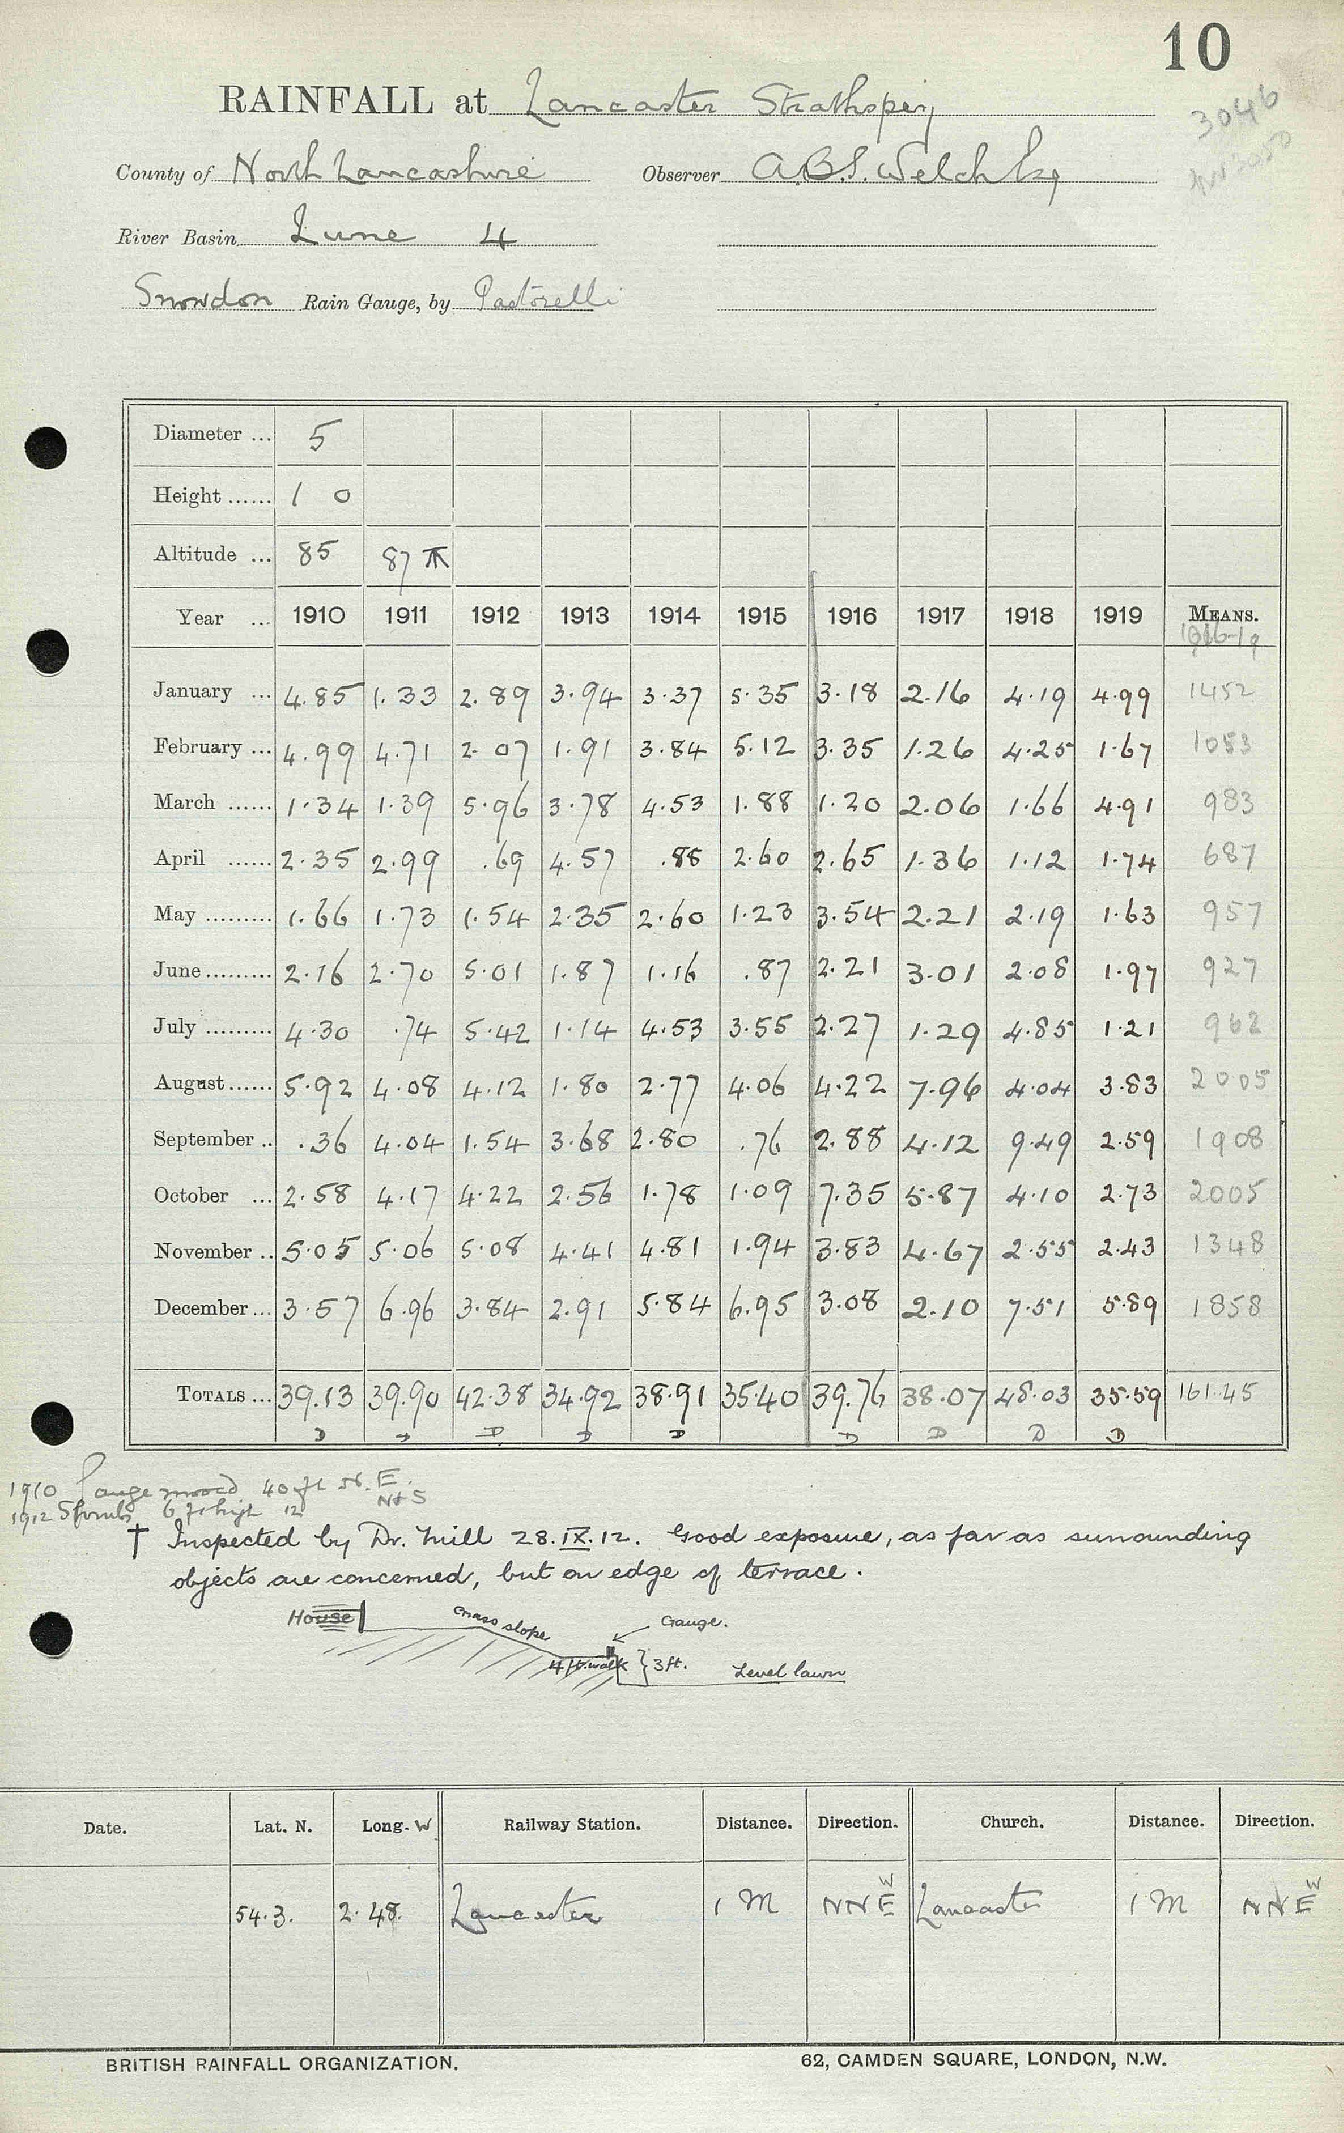 10
RAINFALL at Lancaster Strathspey
3046
County of North Lancashire Observer A.B.S. Welch Esq
River Basin Lune 4
Snowdon Rain Gauge, by Pastorelli
Diameter ... 5
Height ...... 1 0
Altitude ... 85 87
Year ... 1910 1911 1912 1913 1914 1915 1916 1917 1918 1919 MEANS.
1916-19
January ... 4.85 1.33 2.89 3.94 3.37 5.35 3.18 2.16 4.19 4.99 1452
February ... 4.99 4.71 2.07 1.91 3.84 5.12 3.35 1.26 4.25 1.67 1053
March ...... 1.34 1.39 5.96 3.78 4.53 1.88 1.20 2.06 1.66 4.91 983
April ...... 2.35 2.99 .69 4.57 .85 2.60 2.65 1.36 1.12 1.74 687
May ......... 1.66 1.73 1.54 2.35 2.60 1.23 3.54 2.21 2.19 1.63 957
June ......... 2.16 2.70 5.01 1.87 1.16 .87 2.21 3.01 2.08 1.97 927
July ......... 4.30 .74 5.42 1.14 4.53 3.55 2.27 1.29 4.85 1.21 962
August ...... 5.92 4.08 4.12 1.80 2.77 4.06 4.22 7.96 4.04 3.83 2005
September .. .36 4.04 1.54 3.68 2.80 .76 2.88 4.12 9.49 2.59 1908
October ... 2.58 4.17 4.22 2.56 1.78 1.09 7.35 5.87 4.10 2.73 2005
November .. 5.05 5.06 5.08 4.41 4.81 1.94 3.83 4.67 2.55 2.43 1348
December ... 3.57 6.96 3.84 2.91 5.84 6.95 3.08 2.10 7.51 5.89 1858
TOTALS ... 39.13 39.90 42.38 34.92 38.91 35.40 39.76 38.07 48.03 35.59 161.45
D D D D D D D D D
1910 Gauge moved 40 ft N.E.
1912 6 ft high 12 Nt 5
† Inspected by Dr. Mill 28.IX.12. Good exposure, as far as surrounding
objects are concerned, but on edge of terrace.
House Grass slope Gauge.
4 ft. walk 3 ft. Level lawn
Date. Lat. N. Long. W Railway Station. Distance. Direction. Church. Distance. Direction.
54.3. 2.48. Lancaster 1 M NNE W Lancaster 1 M NNE W
BRITISH RAINFALL ORGANIZATION. 62, CAMDEN SQUARE, LONDON, N.W.